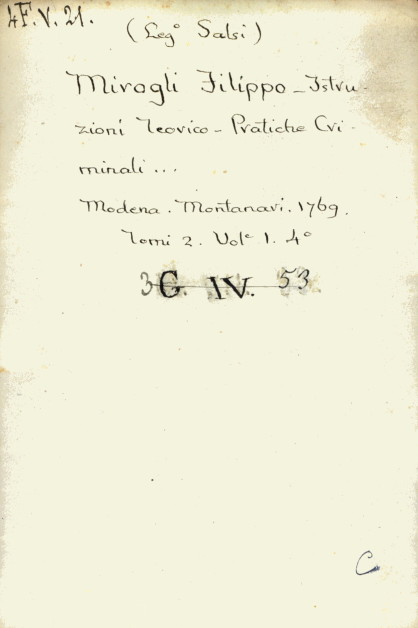 4F.V.21.
(Leg° Salsi)
Mirogli Filippo - Istru-
zioni Teorico - Pratiche Cri-
minali...
Modena. Montanari. 1769.
Tomi 2. Vol^e 1. 4°
3 G. IV. 53
C